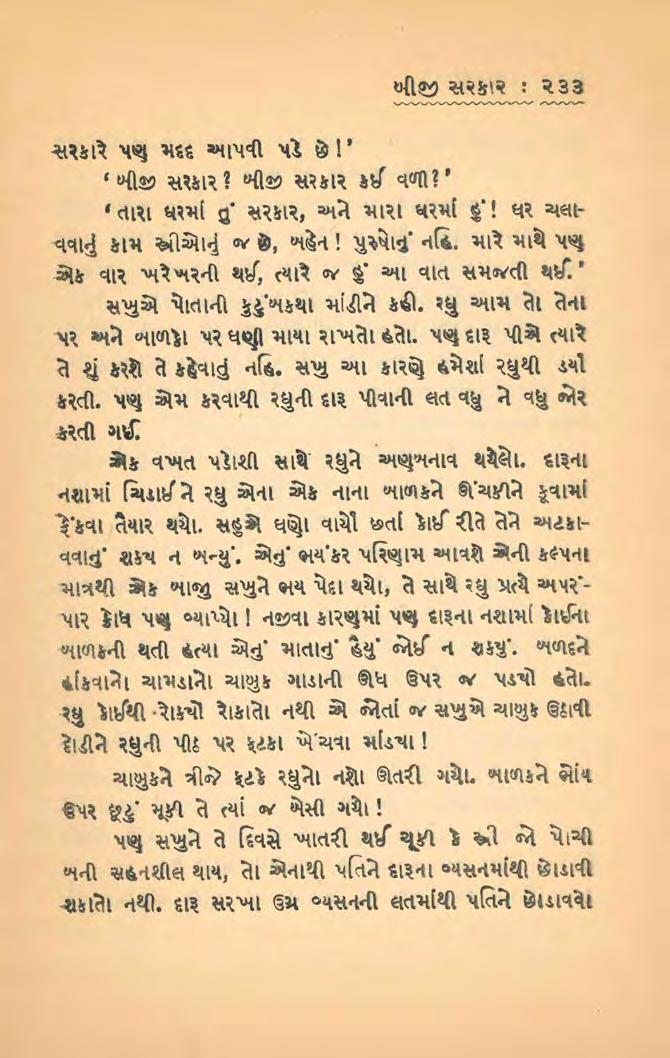 બીજી સરકાર : ૨૩૩
સરકારે પણ મદદ આપવી પડે છે !’
‘ બીજી સરકાર ? બીજી સરકાર કઈ વળી ?’
‘ તારા ઘરમાં તું સરકાર, અને મારા ઘરમાં હું ! ઘર ચલા-
વવાનું કામ સ્ત્રીઓનું જ છે, બહેન ! પુરુષોનું નહિ. મારે માથે પણ
એક વાર ખરેખરની થઈ, ત્યારે જ હું આ વાત સમજતી થઈ.’
સખુએ પોતાની કુટુંબકથા માંડીને કહી. રઘુ આમ તો તેના
પર અને બાળકો પર ઘણી માયા રાખતો હતો. પણ દારૂ પીએ ત્યારે
તે શું કરશે તે કહેવાતું નહિ. સખુ આ કારણે હમેશાં રઘુથી ડર્યા
કરતી. પણ એમ કરવાથી રઘુની દારૂ પીવાની લત વધુ ને વધુ જોર
કરતી ગઈ.
એક વખત પડોશી સાથે રઘુને અણબનાવ થયેલો. દારૂના
નશામાં ચિડાઈને રઘુ એના એક નાના બાળકને ઊંચકીને કૂવામાં
ફેંકવા તૈયાર થયો. સહુએ ઘણો વાર્યો છતાં કોઈ રીતે તેને અટકા-
વવાનું શક્ય ન બન્યું. એનું ભયંકર પરિણામ આવશે એની કલ્પના
માત્રથી એક બાજુ સખુને ભય પેદા થયો, તે સાથે રઘુ પ્રત્યે અપરં-
પાર ક્રોધ પણ વ્યાપ્યો ! નજીવા કારણમાં પણ દારૂના નશામાં કોઈના
બાળકની થતી હત્યા એનું માતાનું હૈયું જોઈ ન શક્યું. બળદને
હાંકવાનો ચામડાનો ચાબુક ગાડાની ઊધ ઉપર જ પડ્યો હતો.
રઘુ કોઈથી રોક્યો રોકાતો નથી એ જોતાં જ સખુએ ચાબુક ઉઠાવી
દોડીને રઘુની પીઠ પર ફટકા ખેંચવા માંડ્યા !
ચાબુકને ત્રીજે ફટકે રઘુનો નશો ઊતરી ગયો. બાળકને ભોંય
ઉપર છૂટું મૂકી તે ત્યાં જ બેસી ગયો !
પણ સખુને તે દિવસે ખાતરી થઈ ચૂકી કે સ્ત્રી જો પોચી
બની સહનશીલ થાય, તો એનાથી પતિને દારૂના વ્યસનમાંથી છોડાવી
શકાતો નથી. દારૂ સરખા ઉગ્ર વ્યસનની લતમાંથી પતિને છોડાવવો